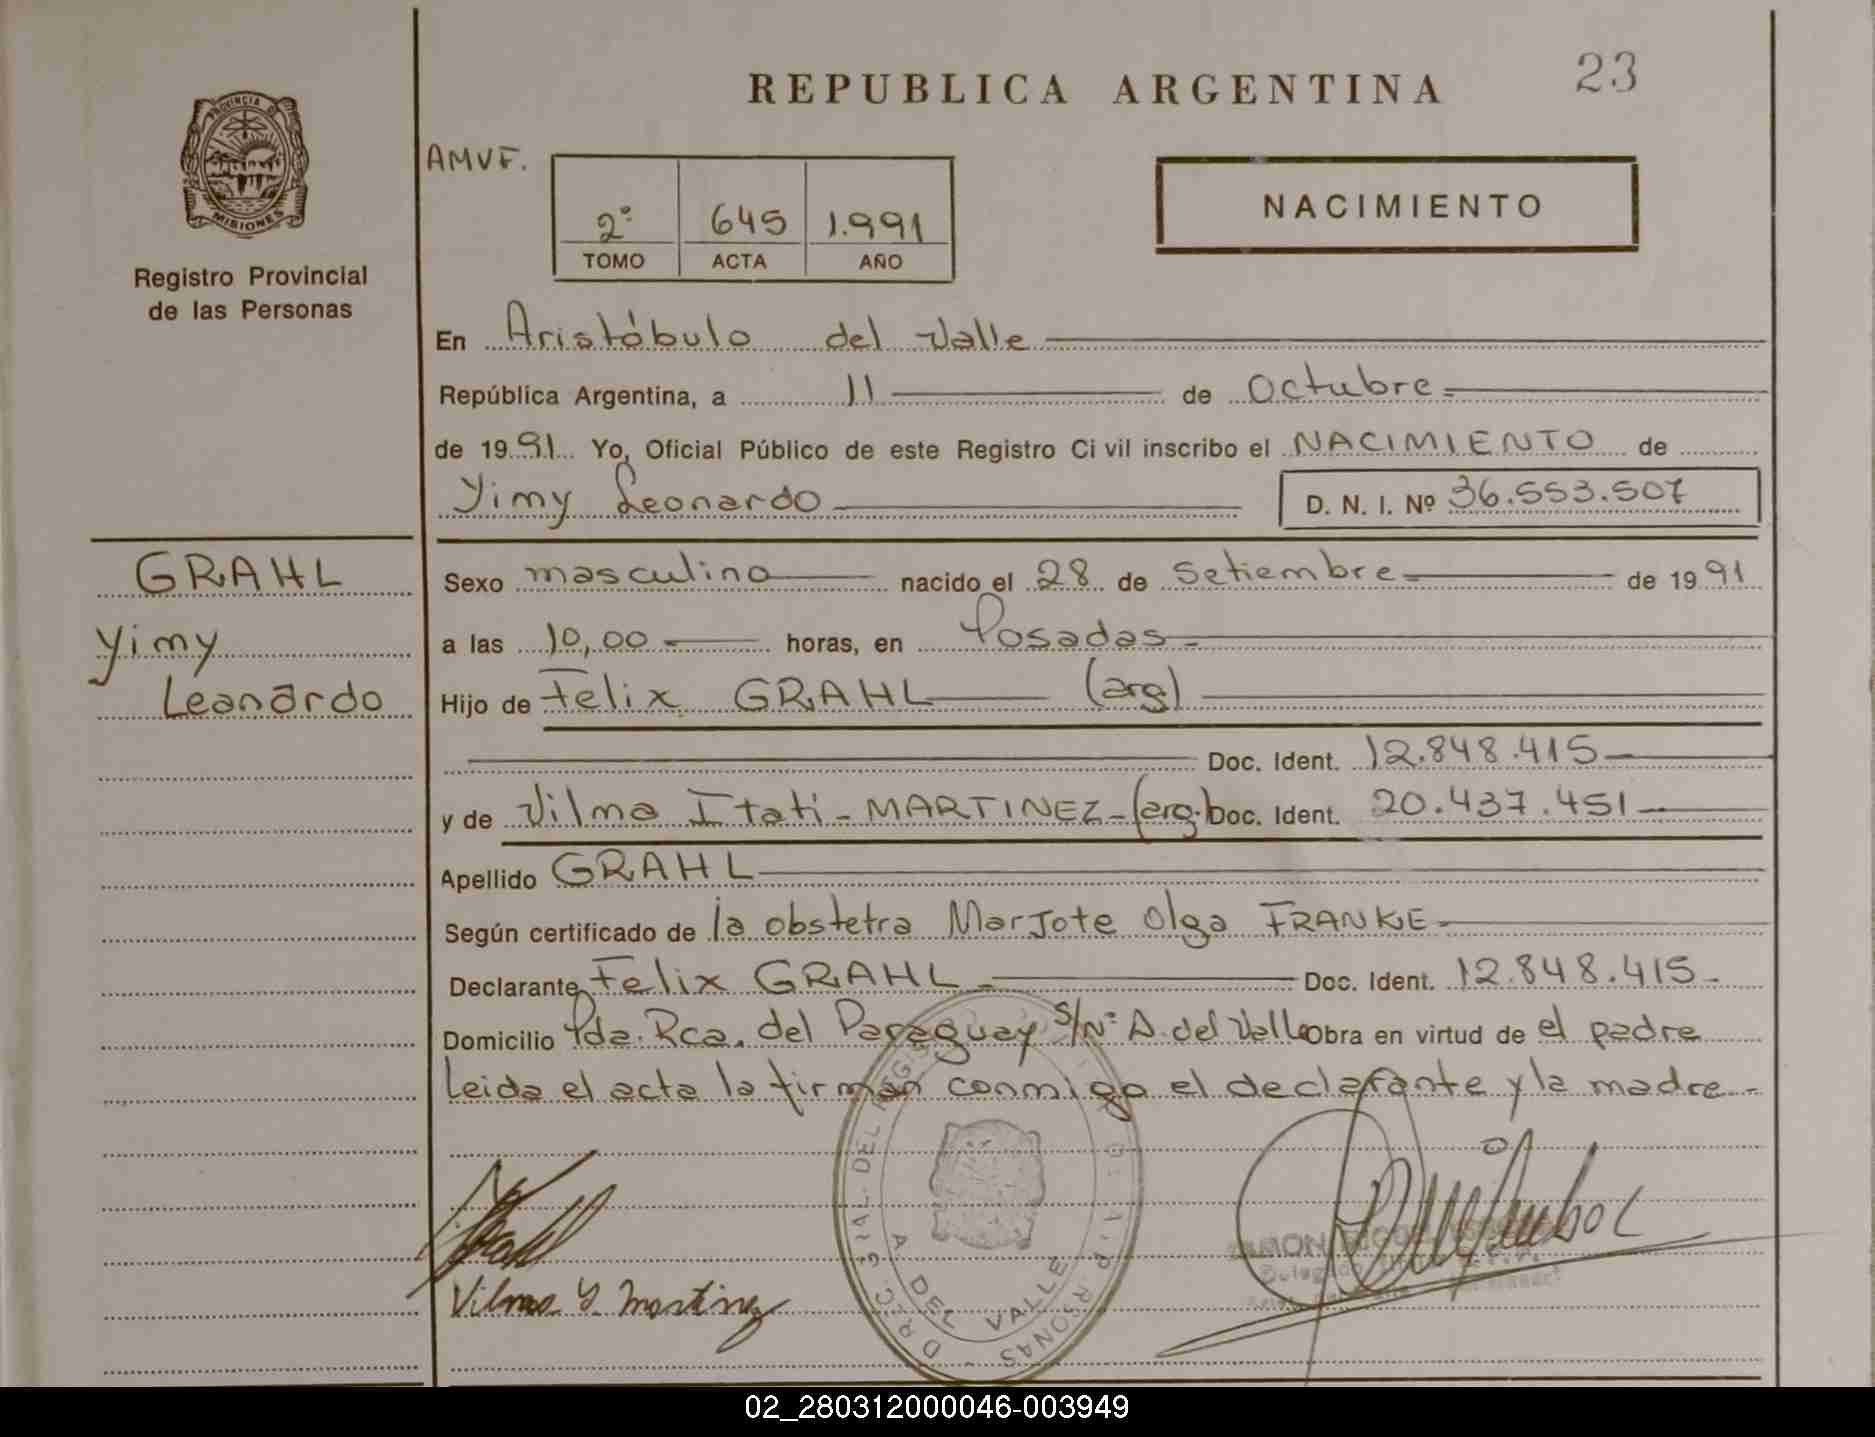 23
REPUBLICA ARGENTINA
PROVINCIA DE
MISIONES
Registro Provincial
de las Personas
AMVF.
2° 645 1.991
TOMO ACTA AÑO
NACIMIENTO
En Aristóbulo del Valle
República Argentina, a 11 de Octubre
de 1991 Yo, Oficial Público de este Registro Civil inscribo el NACIMIENTO de
Yimy Leonardo D. N. I. Nº 36.553.507
GRAHL
Yimy
Leonardo
Sexo masculino nacido el 28 de Setiembre de 1991
a las 10,00 horas, en Posadas
Hijo de Felix GRAHL (arg)
Doc. Ident. 12.848.415
y de Vilma Itati - MARTINEZ - (arg.) Doc. Ident. 20.437.451
Apellido GRAHL
Según certificado de la obstetra Marjote Olga FRANKE
Declarante Felix GRAHL Doc. Ident. 12.848.415
Domicilio Pda. Rca. del Paraguay S/Nº A. del Valle Obra en virtud de el padre
Leida el acta la firman conmigo el declarante y la madre
A. DEL VALLE
Vilma Y Martinez
02_280312000046-003949